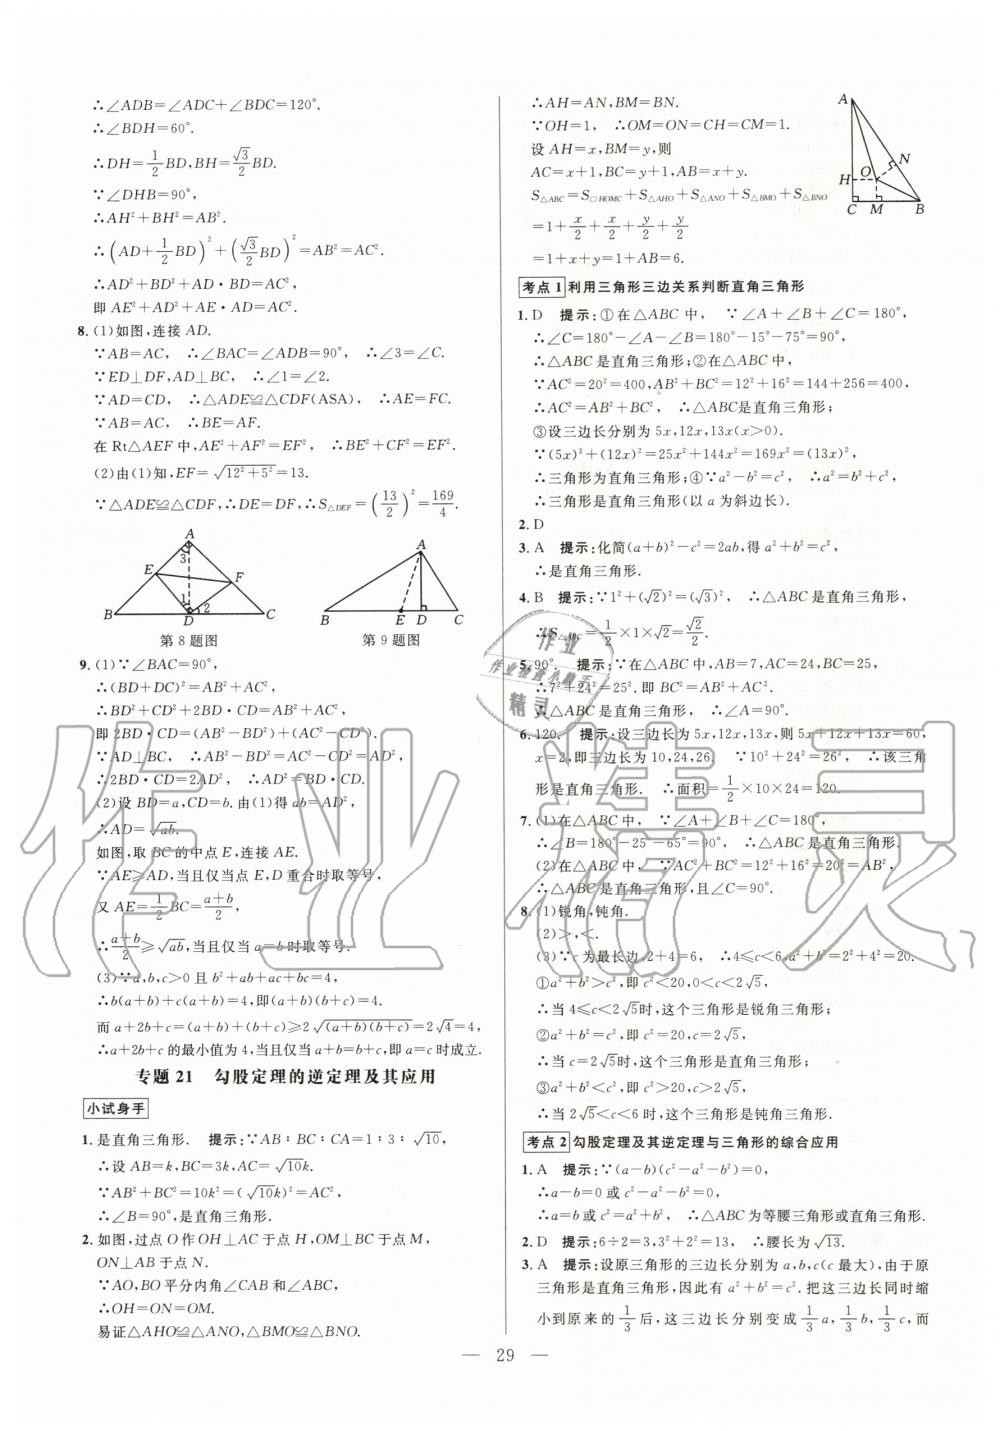 ∴∠ADB=∠ADC+∠BDC=120°.
∴∠BDH=60°.
∴DH=\frac{1}{2}BD,BH=\frac{\sqrt{3}}{2}BD.
∵∠DHB=90°,
∴AH²+BH²=AB².
∴(AD+\frac{1}{2}BD)²+(\frac{\sqrt{3}}{2}BD)²=AB²=AC².
∴AD²+BD²+AD·BD=AC²,
即 AE²+AD²+AE·AD=AC².
8.(1)如图,连接 AD.
∵AB=AC, ∴∠BAC=∠ADB=90°, ∴∠3=∠C.
∵ED⊥DF,AD⊥BC, ∴∠1=∠2.
∵AD=CD, ∴△ADE≌△CDF(ASA), ∴AE=FC.
∵AB=AC, ∴BE=AF.
在 Rt△AEF 中,AE²+AF²=EF², ∴BE²+CF²=EF².
(2)由(1)知,EF=\sqrt{12²+5²}=13.
∵△ADE≌△CDF,∴DE=DF,∴S△DEF=(\frac{13}{2})²=\frac{169}{4}.
A
3
E
F
1
2
B D C
第 8 题图
A
B E D C
第 9 题图
9.(1)∵∠BAC=90°,
∴(BD+DC)²=AB²+AC²,
∴BD²+CD²+2BD·CD=AB²+AC²,
即 2BD·CD=(AB²-BD²)+(AC²-CD²).
∵AD⊥BC, ∴AD²=AB²-BD²=AC²-CD²,
∴2BD·CD=2AD², ∴AD²=BD·CD.
(2)设 BD=a,CD=b.由(1)得 ab=AD²,
∴AD=\sqrt{ab}.
如图,取 BC 的中点 E,连接 AE.
∵AE≥AD,当且仅当点 E,D 重合时取等号,
又 AE=\frac{1}{2}BC=\frac{a+b}{2},
∴\frac{a+b}{2}≥\sqrt{ab},当且仅当 a=b 时取等号.
(3)∵a,b,c>0 且 b²+ab+ac+bc=4,
∴b(a+b)+c(a+b)=4,即(a+b)(b+c)=4.
而 a+2b+c=(a+b)+(b+c)≥2\sqrt{(a+b)(b+c)}=2\sqrt{4}=4,
∴a+2b+c 的最小值为 4,当且仅当 a+b=b+c,即 a=c 时成立.
专题 21 勾股定理的逆定理及其应用
小试身手
1.是直角三角形. 提示:∵AB∶BC∶CA=1∶3∶\sqrt{10},
∴设 AB=k,BC=3k,AC=\sqrt{10}k.
∵AB²+BC²=10k²=(\sqrt{10}k)²=AC²,
∴∠B=90°,是直角三角形.
2.如图,过点 O 作 OH⊥AC 于点 H,OM⊥BC 于点 M,
ON⊥AB 于点 N.
∵AO,BO 平分内角∠CAB 和∠ABC,
∴OH=ON=OM.
易证△AHO≌△ANO,△BMO≌△BNO.
∴AH=AN,BM=BN.
∵OH=1, ∴OM=ON=CH=CM=1.
设 AH=x,BM=y,则
AC=x+1,BC=y+1,AB=x+y.
S△ABC=S□HOMC+S△AHO+S△ANO+S△BMO+S△BNO
=1+\frac{x}{2}+\frac{x}{2}+\frac{y}{2}+\frac{y}{2}
=1+x+y=1+AB=6.
A
N
H O
C M B
考点 1 利用三角形三边关系判断直角三角形
1.D 提示:①在△ABC 中, ∵∠A+∠B+∠C=180°,
∴∠C=180°-∠A-∠B=180°-15°-75°=90°,
∴△ABC 是直角三角形;②在△ABC 中,
∵AC²=20²=400,AB²+BC²=12²+16²=144+256=400,
∴AC²=AB²+BC², ∴△ABC是直角三角形;
③设三边长分别为 5x,12x,13x(x>0).
∵(5x)²+(12x)²=25x²+144x²=169x²=(13x)²,
∴三角形为直角三角形;④∵a²-b²=c², ∴a²=b²+c²,
∴三角形是直角三角形(以 a 为斜边长).
2.D
3.A 提示:化简(a+b)²-c²=2ab,得 a²+b²=c²,
∴是直角三角形.
4.B 提示:∵1²+(\sqrt{2})²=(\sqrt{3})², ∴△ABC 是直角三角形,
∴S△ABC=\frac{1}{2}×1×\sqrt{2}=\frac{\sqrt{2}}{2}.
5.90°. 提示:∵在△ABC 中,AB=7,AC=24,BC=25,
∴7²+24²=25². 即 AB²+AC²=BC²,
∴△ABC 是直角三角形, ∴∠A=90°.
6.120. 提示:设三边长为 5x,12x,13x,则 5x+12x+13x=60,
x=2,即三边长为 10,24,26. ∵10²+24²=26², ∴该三角
形是直角三角形. ∴面积=\frac{1}{2}×10×24=120.
7.(1)在△ABC 中, ∵∠A+∠B+∠C=180°,
∴∠B=180°-25°-65°=90°, ∴△ABC 是直角三角形.
(2)在△ABC 中, ∵AC²+BC²=12²+16²=20²=AB²,
∴△ABC 是直角三角形,且∠C=90°.
8.(1)锐角,钝角.
(2)>,<.
(3)∵c 为最长边,2+4=6, ∴4≤c<6,a²+b²=2²+4²=20.
①a²+b²>c²,即 c²<20,0<c<2\sqrt{5},
∴当 4≤c<2\sqrt{5}时,这个三角形是锐角三角形;
②a²+b²=c²,即 c²=20,c=2\sqrt{5},
∴当 c=2\sqrt{5}时,这个三角形是直角三角形;
③a²+b²<c²,即 c²>20,c>2\sqrt{5},
∴当 2\sqrt{5}<c<6 时,这个三角形是钝角三角形.
考点 2 勾股定理及其逆定理与三角形的综合应用
1.A 提示:∵(a-b)(c²-a²-b²)=0,
∴a-b=0 或 c²-a²-b²=0,
∴a=b 或 c²=a²+b², ∴△ABC 为等腰三角形或直角三角形.
2.D 提示:6÷2=3,3²+2²=13, ∴腰长为\sqrt{13}.
3.A 提示:设原三角形的三边长分别为 a,b,c(c 最大),由于原
三角形是直角三角形,因此有 a²+b²=c². 把这三边长同时缩
小到原来的\frac{1}{3}后,这三边长分别变成\frac{1}{3}a,\frac{1}{3}b,\frac{1}{3}c,而
— 29 —
作业
作业检查小助手
精灵
作业精灵